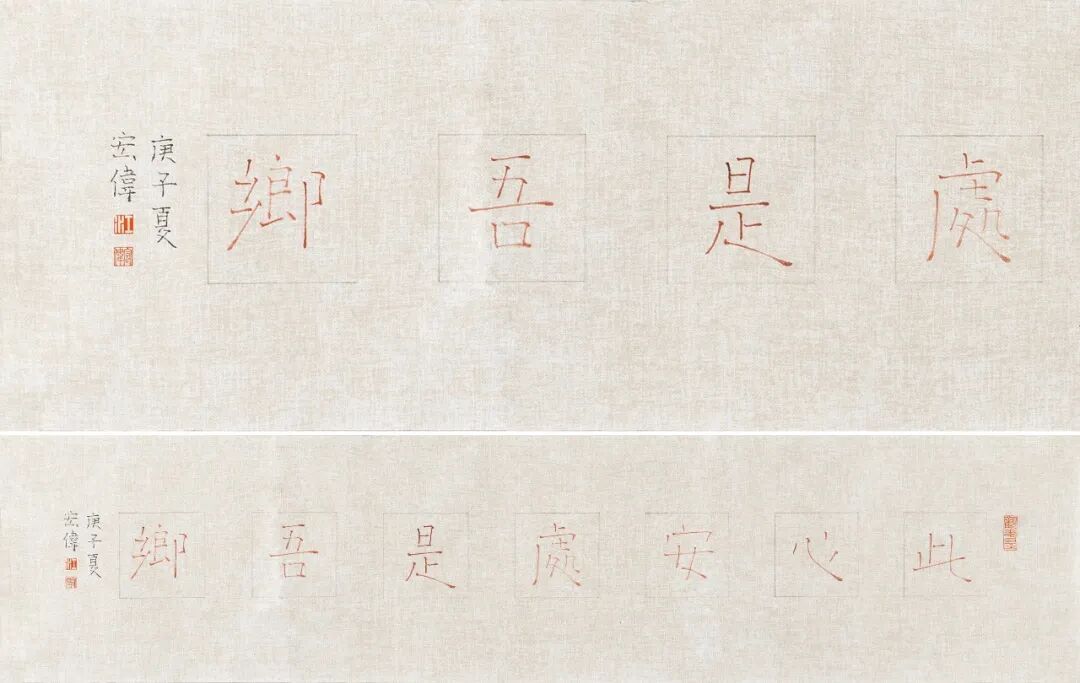 處是吾鄉
庚子夏
宏偉
江
此心安處是吾鄉
庚子夏
宏偉
江